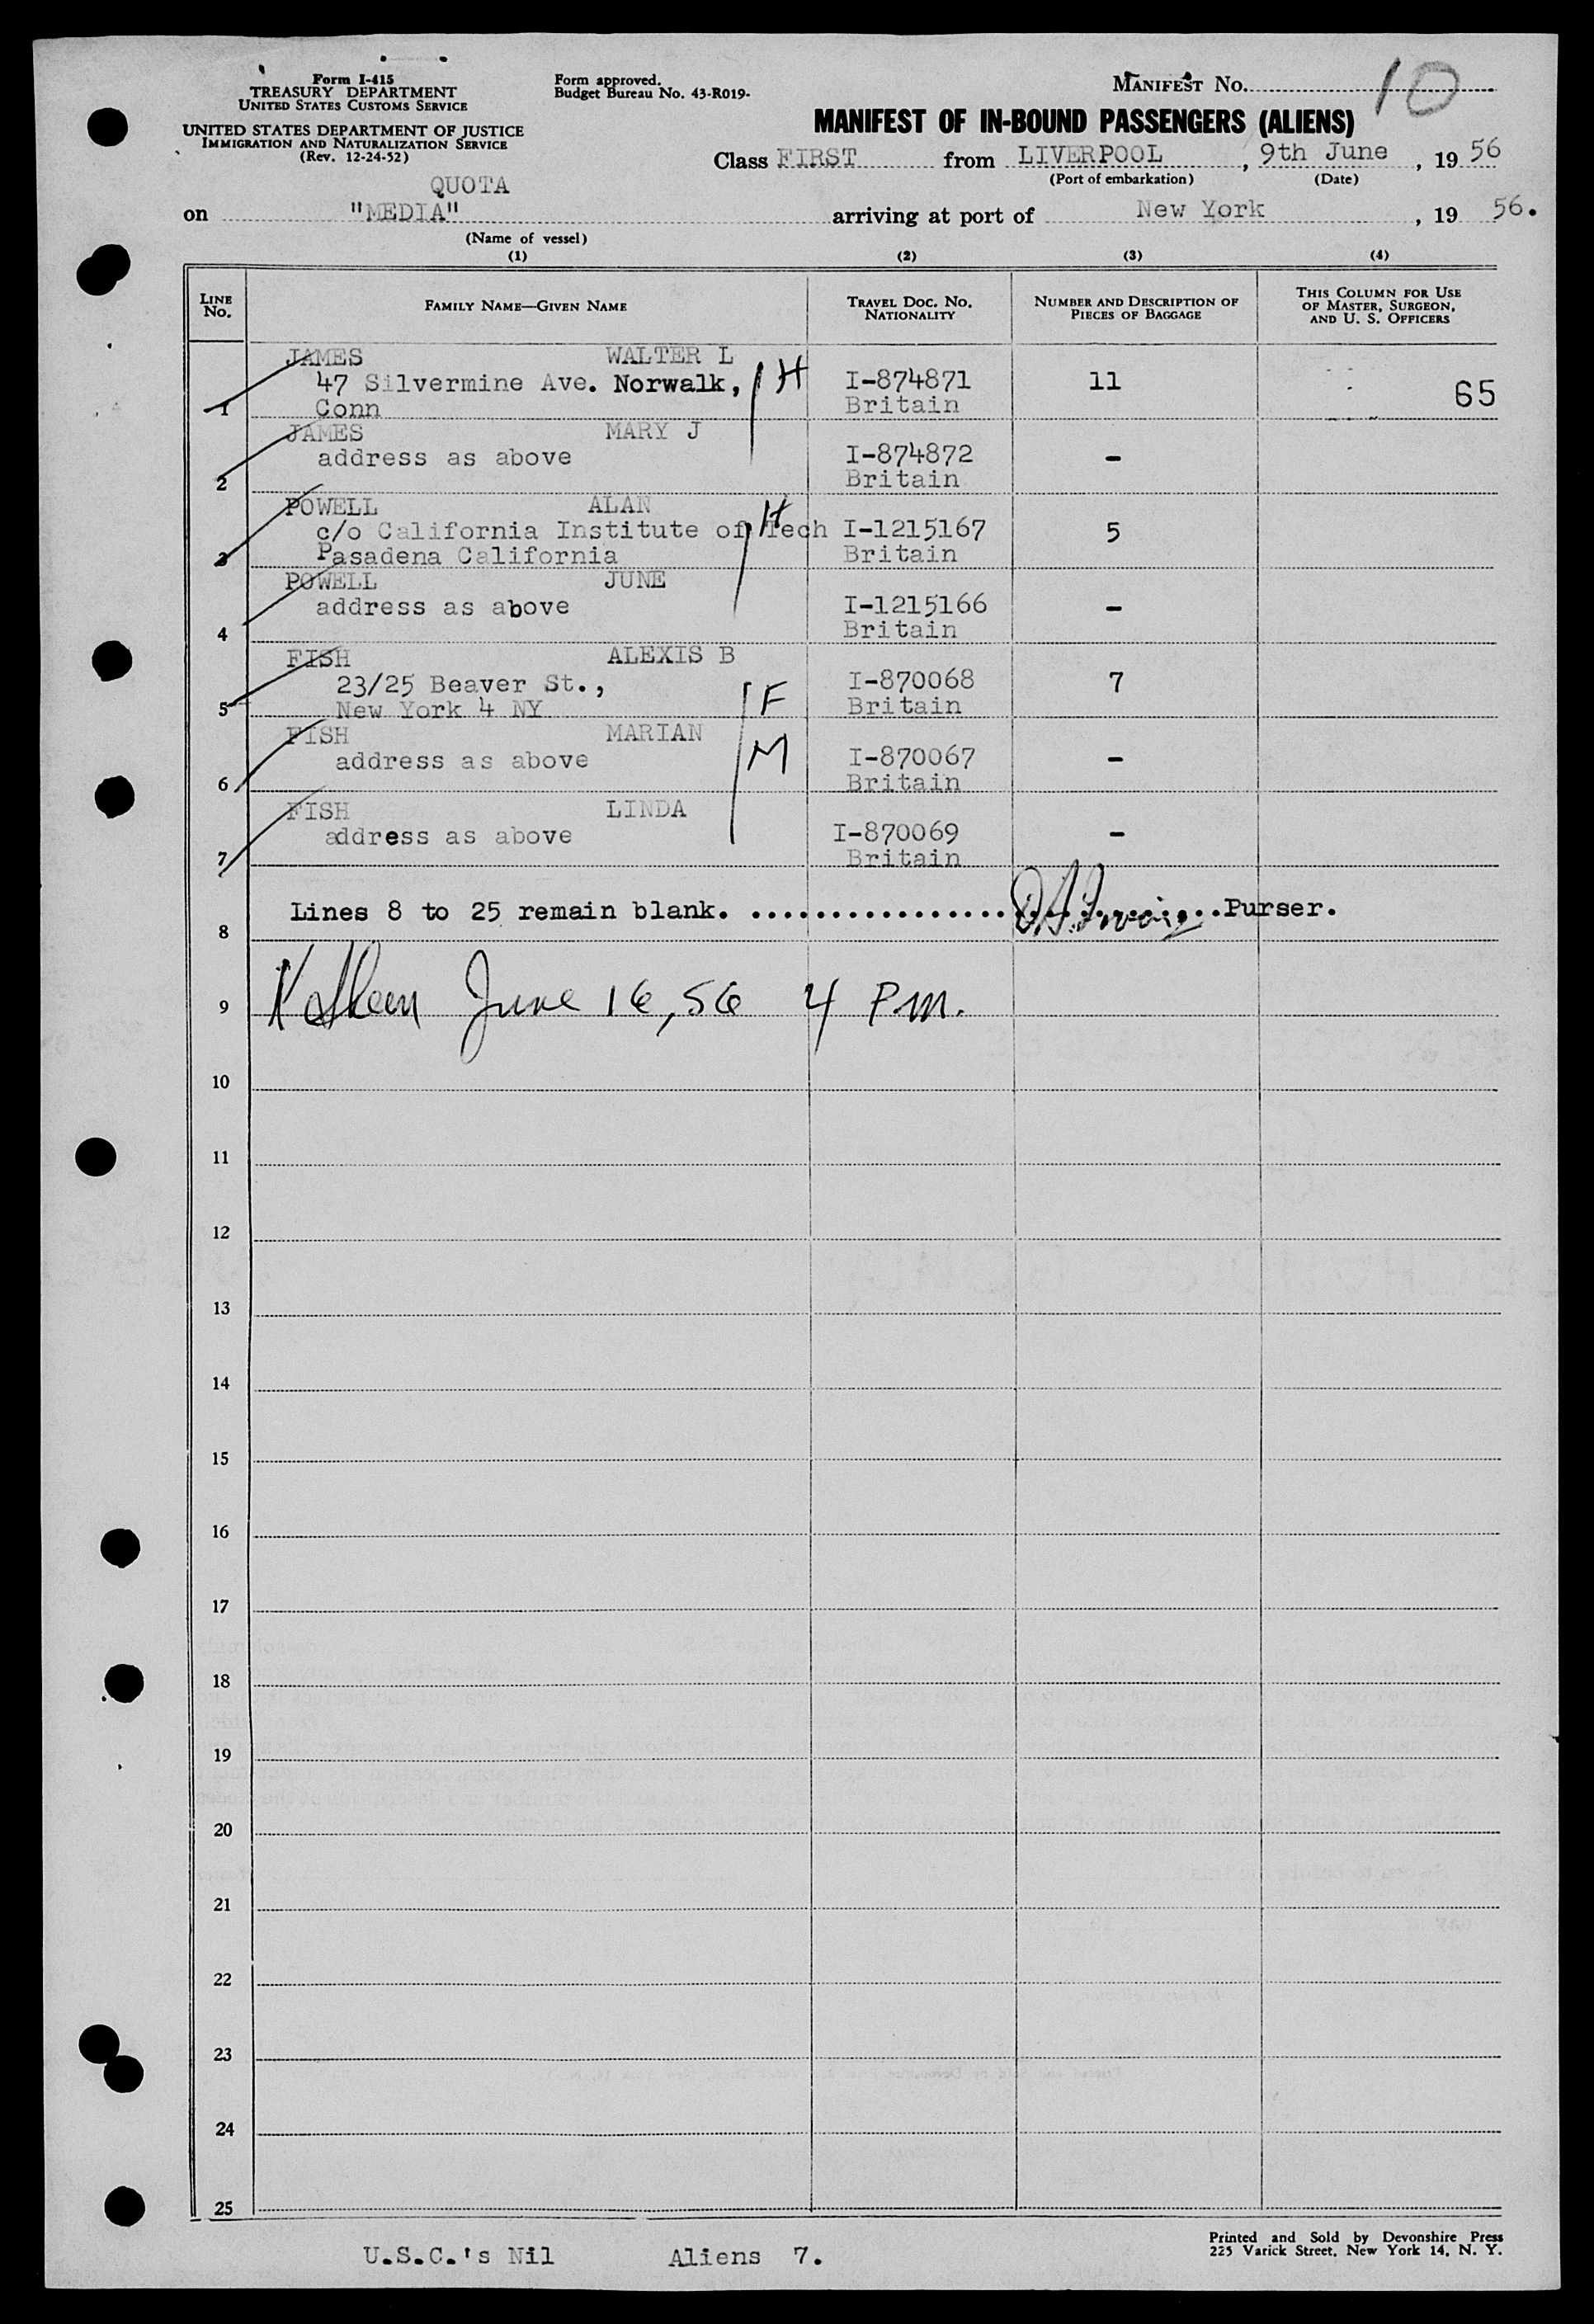 Form I-415
TREASURY DEPARTMENT
UNITED STATES CUSTOMS SERVICE
UNITED STATES DEPARTMENT OF JUSTICE
IMMIGRATION AND NATURALIZATION SERVICE
(Rev. 12-24-52)
Form approved.
Budget Bureau No. 43-R019-
MANIFEST No. 10
MANIFEST OF IN-BOUND PASSENGERS (ALIENS)
Class FIRST from LIVERPOOL, 9th June, 19 56
(Port of embarkation) (Date)
QUOTA
on "MEDIA" arriving at port of New York, 19 56.
(Name of vessel)
(1) (2) (3) (4)
LINE No. FAMILY NAME—GIVEN NAME TRAVEL DOC. NO. NATIONALITY NUMBER AND DESCRIPTION OF PIECES OF BAGGAGE THIS COLUMN FOR USE OF MASTER, SURGEON, AND U. S. OFFICERS
JAMES WALTER L
47 Silvermine Ave. Norwalk, H I-874871 11 65
1 Conn Britain
JAMES MARY J
address as above I-874872 -
2 Britain
POWELL ALAN H
c/o California Institute of Tech I-1215167 5
3 Pasadena California Britain
POWELL JUNE
address as above I-1215166 -
4 Britain
FISH ALEXIS B
23/25 Beaver St., I-870068 7
5 New York 4 NY F Britain
FISH MARIAN
address as above M I-870067 -
6 Britain
FISH LINDA
address as above I-870069 -
7 Britain
8 Lines 8 to 25 remain blank. ............................Purser.
9 June 16, 56 4 P.m.
10
11
12
13
14
15
16
17
18
19
20
21
22
23
24
25
U.S.C.'s Nil Aliens 7.
Printed and Sold by Devonshire Press
225 Varick Street, New York 14, N. Y.